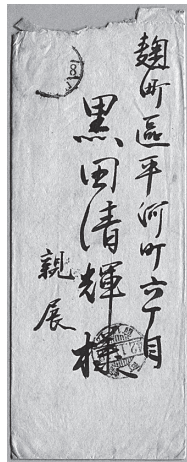 麹町區平河町六丁目
黒田清輝様
親展